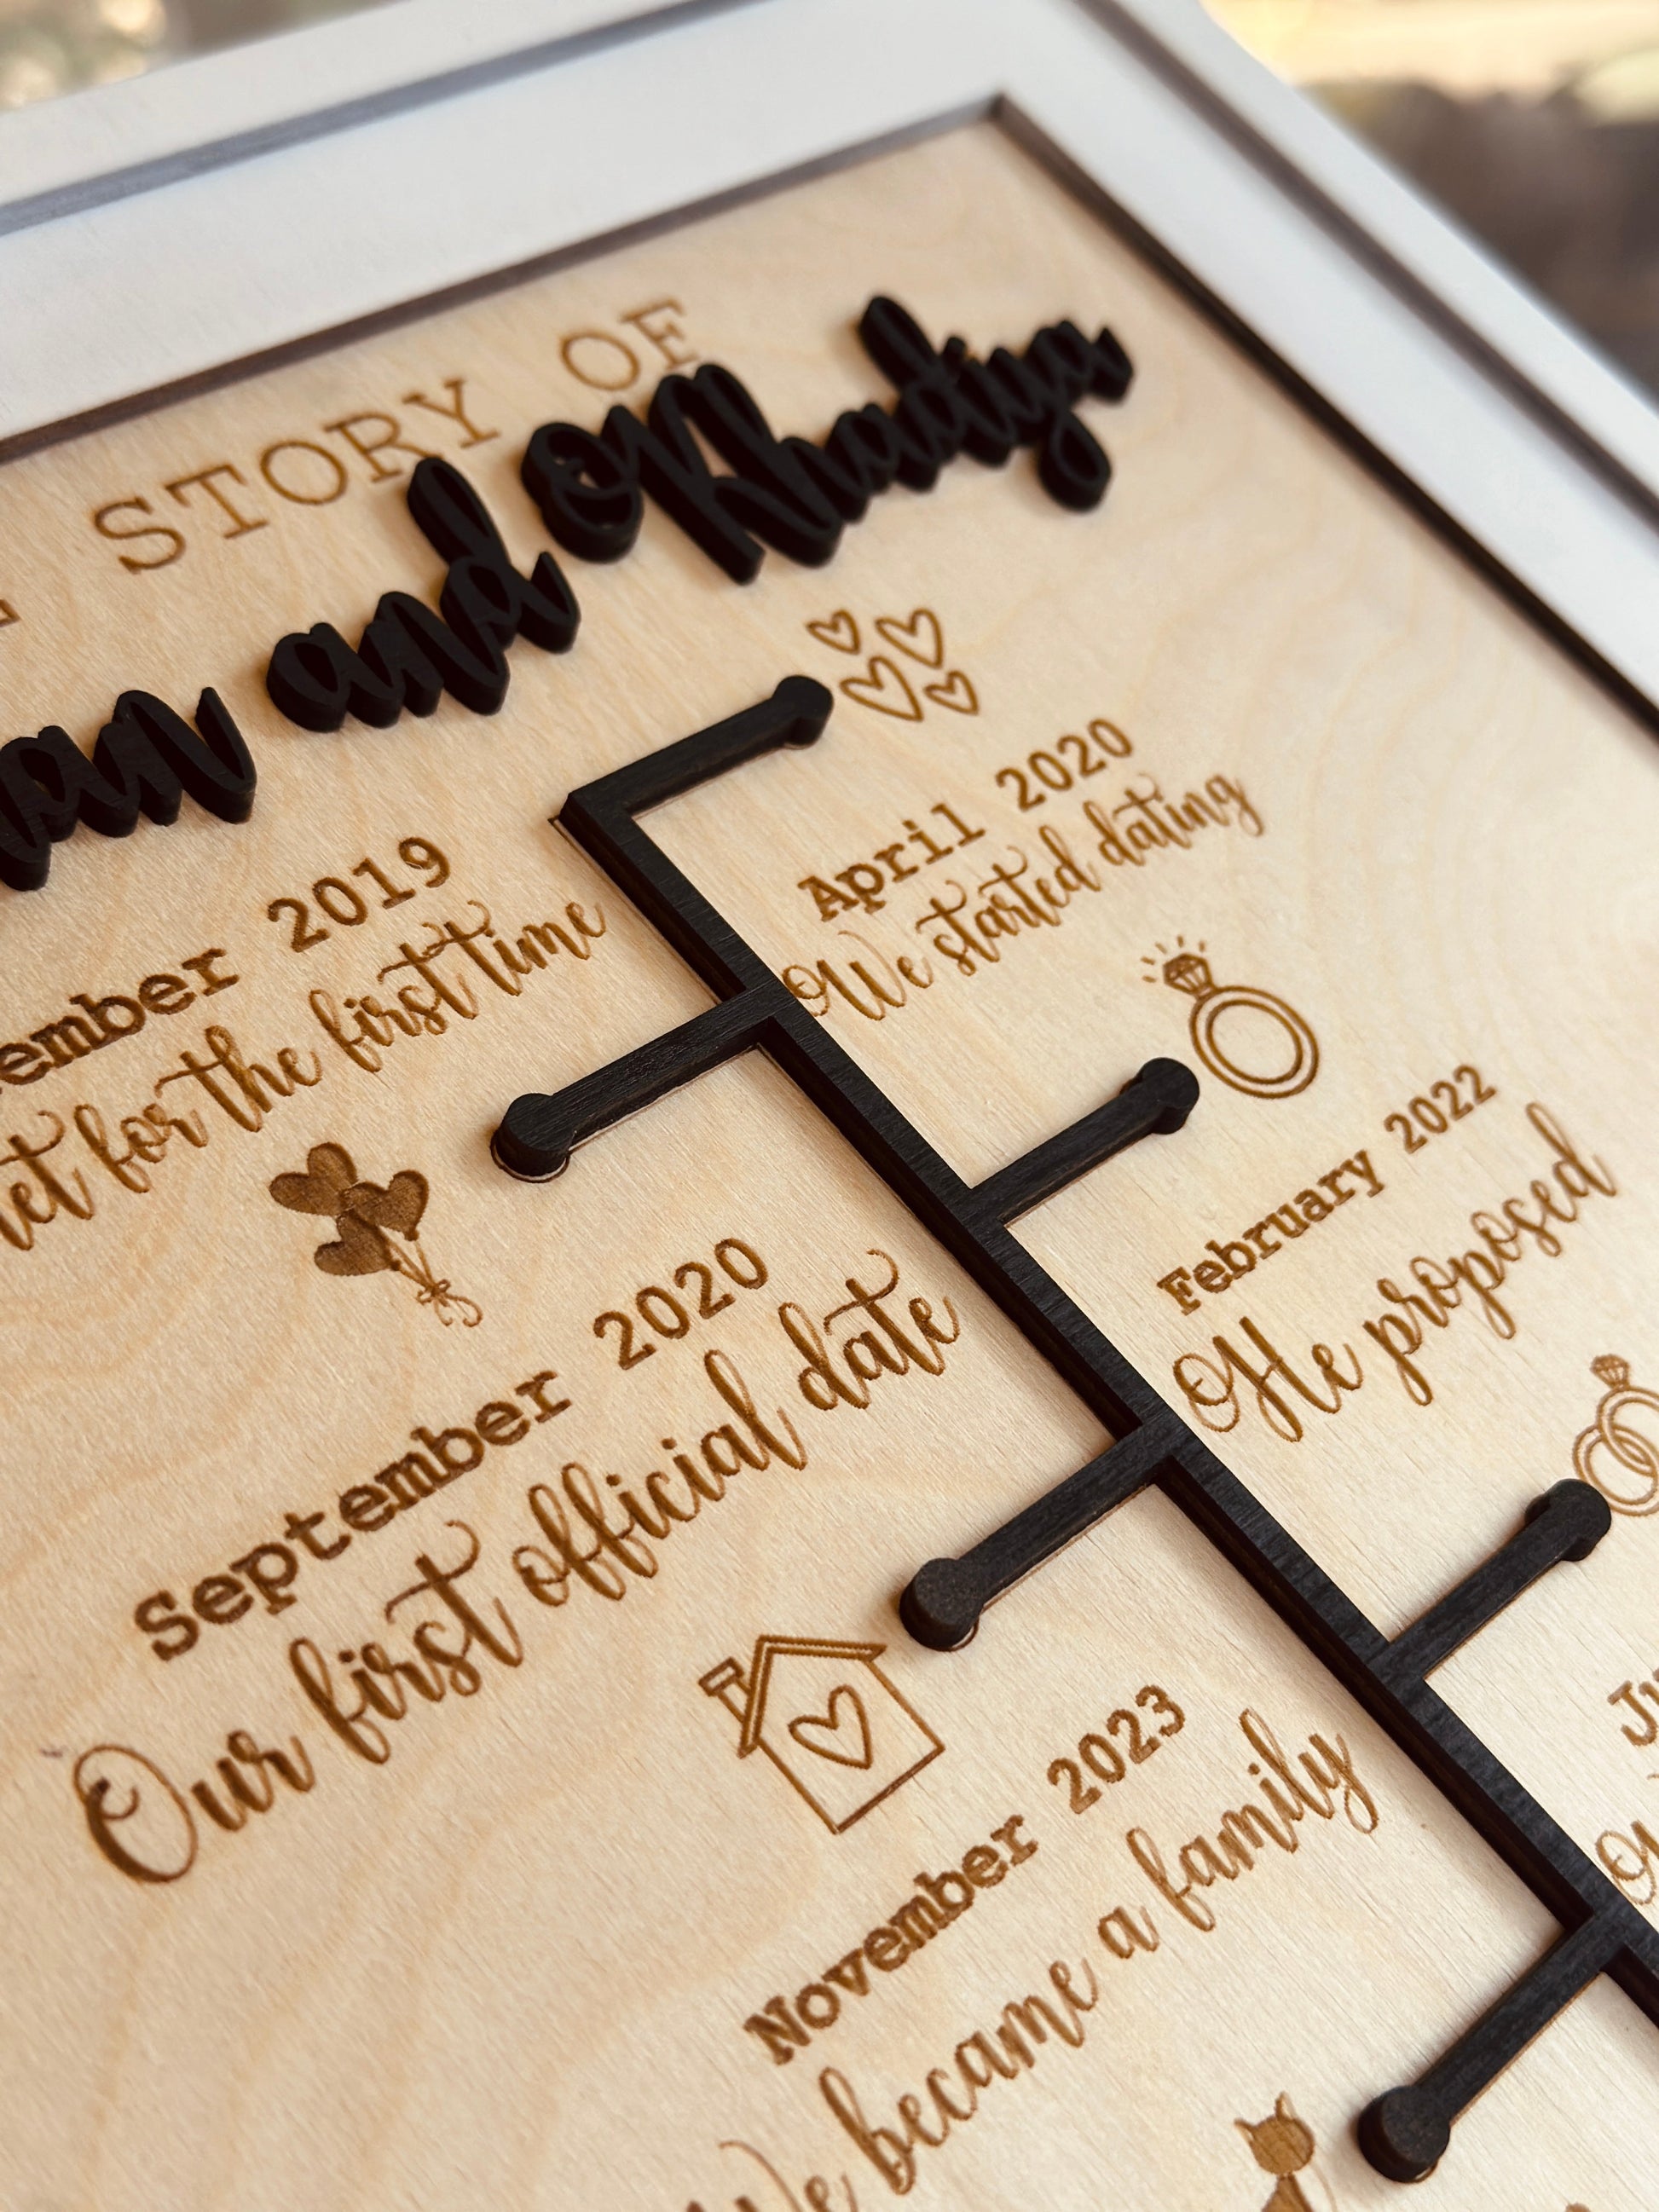 STORY OF
and Khadiya
2019
for the first time
April 2020
We started dating
September 2020
Our first official date
February 2022
He proposed
November 2023
We became a family